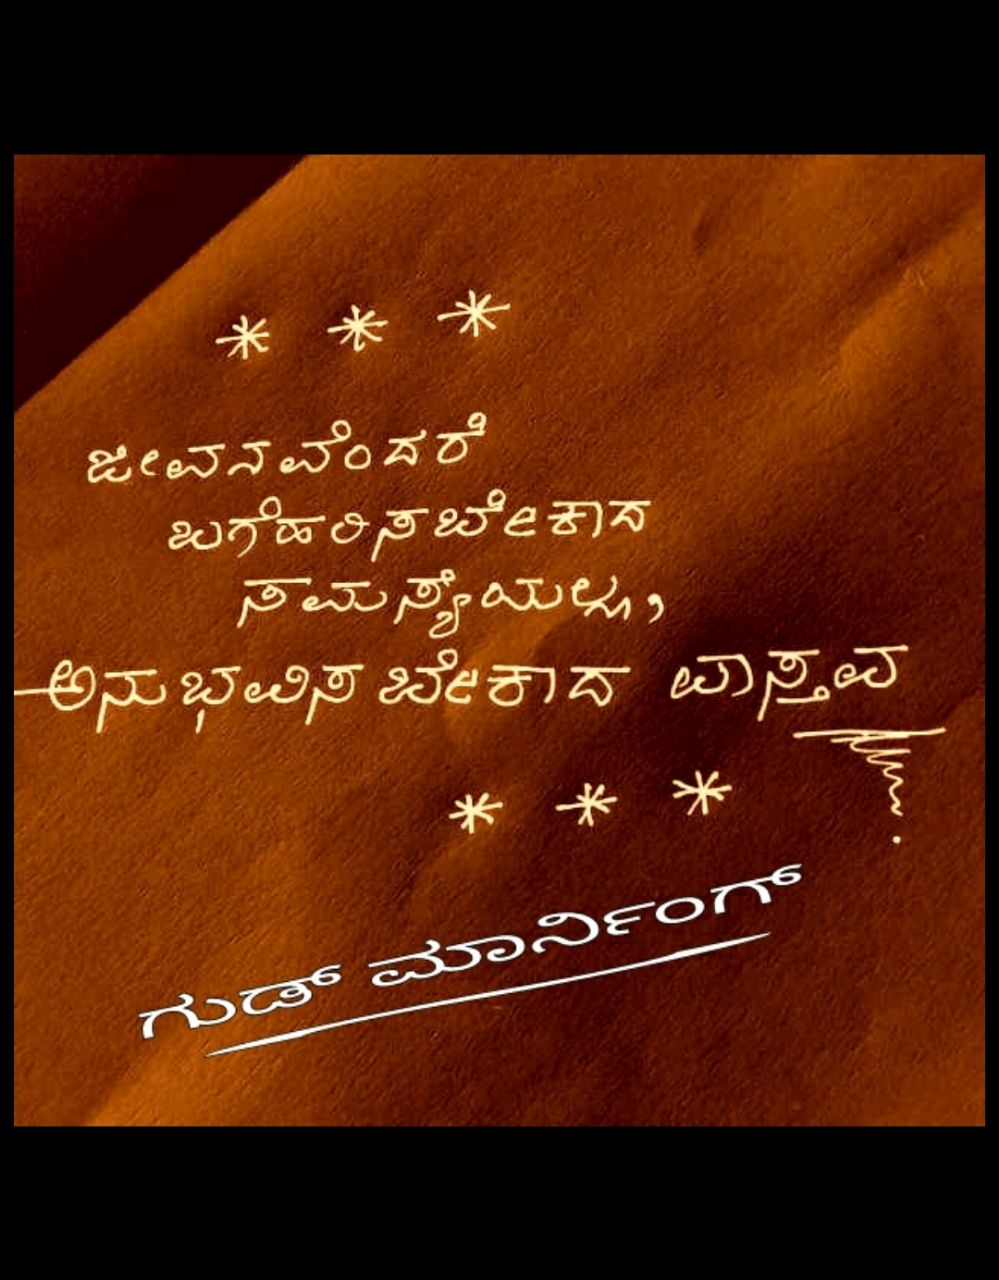 * * *
ಜೀವನವೆಂದರೆ
ಬಗೆಹರಿಸಬೇಕಾದ
ಸಮಸ್ಯೆಯಲ್ಲ,
ಅನುಭವಿಸಬೇಕಾದ ವಾಸ್ತವ
* * *
ಗುಡ್ ಮಾರ್ನಿಂಗ್